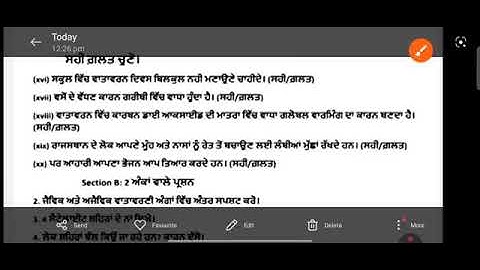 Today
12:26 pm
ਸਹੀ ਗ਼ਲਤ ਚੁਣੋ।
(xvi) ਸਕੂਲ ਵਿੱਚ ਵਾਤਾਵਰਨ ਦਿਵਸ ਬਿਲਕੁਲ ਨਹੀ ਮਨਾਉਣੇ ਚਾਹੀਦੇ। (ਸਹੀ/ਗ਼ਲਤ)
(xvii) ਵਸੋਂ ਦੇ ਵੱਧਣ ਕਾਰਨ ਗਰੀਬੀ ਵਿੱਚ ਵਾਧਾ ਹੁੰਦਾ ਹੈ। (ਸਹੀ/ਗ਼ਲਤ)
(xviii) ਵਾਤਾਵਰਨ ਵਿੱਚ ਕਾਰਬਨ ਡਾਈ ਆਕਸਾਈਡ ਦੀ ਮਾਤਰਾ ਵਿੱਚ ਵਾਧਾ ਗਲੋਬਲ ਵਾਰਮਿੰਗ ਦਾ ਕਾਰਨ ਬਣਦਾ ਹੈ।
(ਸਹੀ/ਗ਼ਲਤ)
(xix) ਰਾਜਸਥਾਨ ਦੇ ਲੋਕ ਆਪਣੇ ਮੂੰਹ ਅਤੇ ਨਾਸਾਂ ਨੂੰ ਰੇਤ ਤੋਂ ਬਚਾਉਣ ਲਈ ਲੰਬੀਆਂ ਮੁੱਛਾਂ ਰੱਖਦੇ ਹਨ। (ਸਹੀ/ਗ਼ਲਤ)
(xx) ਪਰ ਆਹਾਰੀ ਆਪਣਾ ਭੋਜਨ ਆਪ ਤਿਆਰ ਕਰਦੇ ਹਨ। (ਸਹੀ/ਗ਼ਲਤ)
Section B: 2 ਅੰਕਾਂ ਵਾਲੇ ਪ੍ਰਸ਼ਨ
2. ਜੈਵਿਕ ਅਤੇ ਅਜੈਵਿਕ ਵਾਤਾਵਰਣੀ ਅੰਗਾਂ ਵਿੱਚ ਅੰਤਰ ਸਪਸ਼ਟ ਕਰੋ।
3. 4 ਸੈਟੇਲਾਈਟ ਸ਼ਹਿਰਾਂ ਦੇ ਨਾਂ ਲਿਖੋ।
Send Favourite Edit Delete More
4. ਲੋਕ ਸ਼ਹਿਰਾਂ ਵੱਲ ਕਿਉਂ ਜਾ ਰਹੇ ਹਨ? ਕਾਰਨ ਦੱਸੋ।